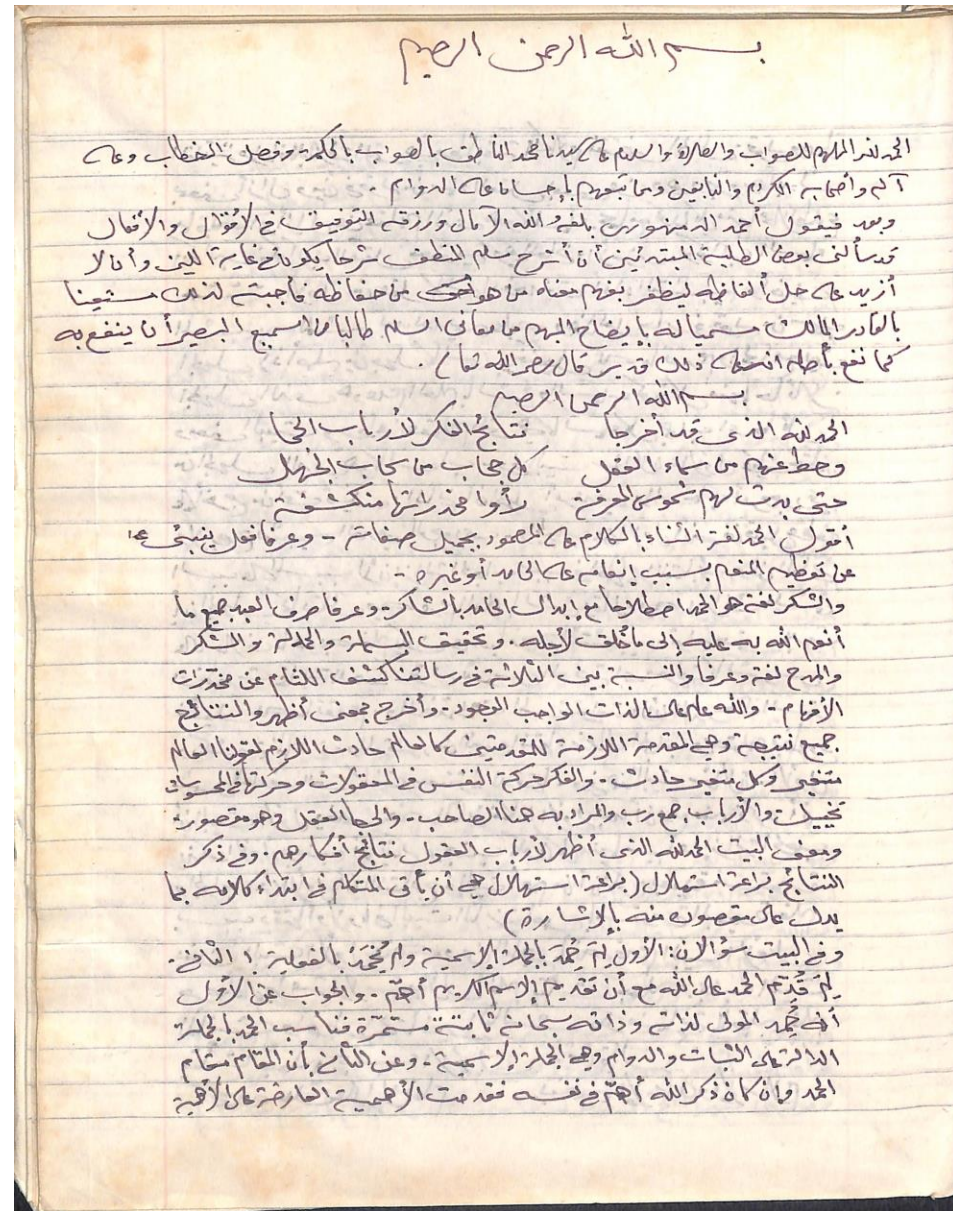 بسم الله الرحمن الرحيم
الحمد لله الملهم للصواب والصلاة والسلام على سيدنا محمد الناطق بالصواب بالحكمة وفصل الخطاب وعلى
آله وأصحابه الكرام والتابعين ومن تبعهم بإحسان على الدوام .
وبعد فيقول أحمد الدمنهوري بلغه الله الآمال ورزقه التوفيق في الأقوال والأفعال
قد سألني بعض الطلبة المبتدئين أن أشرح سلم المنطق شرحا يكون في غاية اللين وأن لا
أزيد على حل ألفاظه ليظفر بفهم معناه من هو من حفاظه فأجبته لذلك مستعينا
بالقادر المالك مسميا له بإيضاح المبهم من معاني السلم طالبا من السميع البصير أن ينفع به
كما نفع بأصله انه على ذلك قدير قال رحمه الله تعالى .
بسم الله الرحمن الرحيم
الحمد لله الذي قد أخرجا نتائج الفكر لأرباب الحجا
وحط عنهم من سماء العقل كل حجاب من سحاب الجهل
حتى بدت لهم شموس المعرفة رأوا مخدراتها منكشفة
أقول الحمد لغة الثناء بالكلام على المحمود بجميل صفاته - وعرفا فعل ينبئ
عن تعظيم المنعم بسبب إنعامه على الحامد أو غيره -
والشكر لغة هو الحمد اصطلاحا مع إبدال الحامد بالشاكر - وعرفا صرف العبد جميع ما
أنعم الله به عليه إلى ما خُلق لأجله . وتحقيق البسملة والحمدلة والشكر
والمدح لغة وعرفا والنسبة بين الثلاثة في رسالتنا كشف اللثام عن مخدّرات
الأفهام - والله علم على الذات الواجب الوجود - وأخرج بمعنى أظهر والنتائج
جميع نتيجة وهي المقدمة اللازمة للمقدمتين كالعالم حادث اللازم لقولنا العالم
متغير وكل متغير حادث - والفكر حركة النفس في المعقولات وحركتها في المحسوسات
تخييل والأرباب جمع رب والمراد به هنا الصاحب - والحجا العقل وهو مقصور -
ومعنى البيت الحمد لله الذي أظهر لأرباب العقول نتائج أفكارهم . وفي ذكر
النتائج براعة استهلال (براعة استهلال هي أن يأتي المتكلم في ابتداء كلامه بما
يدل على مقصوده منه بالإشارة)
وفي البيت سؤالان : الأول لِمَ حُمِدَ بالجملة الإسمية ولم يُحْمَدْ بالفعلية ؟ الثاني .
لِمَ قُدِّم الحمد على الله مع أن تقديم الإسم الكريم أهمّ . والجواب عن الأوّل
أنه حُمِد المولى لذاته وذاته سبحانه ثابتة مستمرّة فناسب الحمد بالجملة
الدالة على الثبات والدوام وهي الجملة الإسمية - وعن الثاني بأن المقام مقام
الحمد وإن كان ذكر الله أهمّ في نفسه فقدمت الأهمية العارضة على الأهمية